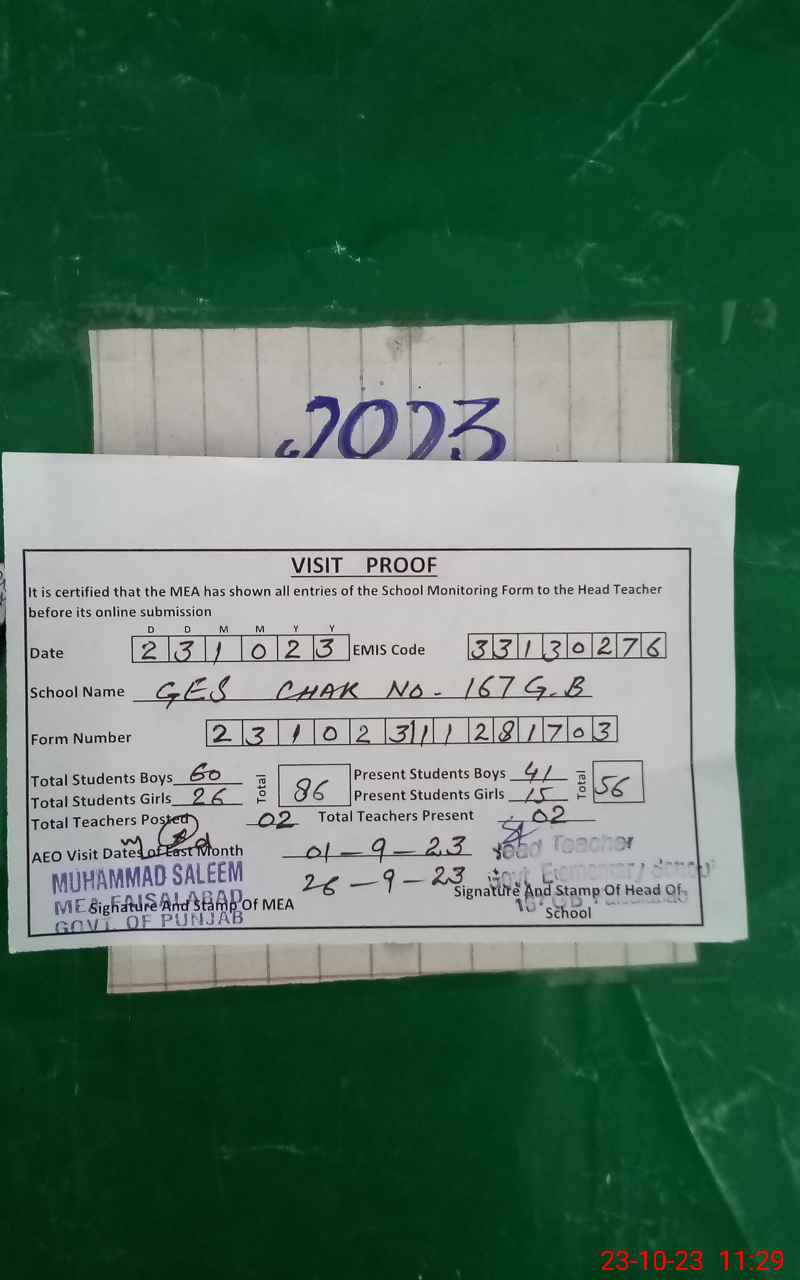 2023
VISIT PROOF
It is certified that the MEA has shown all entries of the School Monitoring Form to the Head Teacher
before its online submission
D D M M Y Y
Date 2 3 1 0 2 3 EMIS Code 3 3 1 3 0 2 7 6
School Name GES CHAK NO. 167 G.B
Form Number 2 3 1 0 2 3 1 1 2 8 1 7 0 3
Total Students Boys 60 Total 86 Present Students Boys 41 Total 56
Total Students Girls 26 Present Students Girls 15
Total Teachers Posted 02 Total Teachers Present 02
AEO Visit Dates of Last Month 01-9-23
26-9-23
Head Teacher
Govt. Elementary School
MUHAMMAD SALEEM
MEA FAISALABAD
GOVT. OF PUNJAB
Signature And Stamp Of MEA
Signature And Stamp Of Head Of
School
23-10-23 11:29